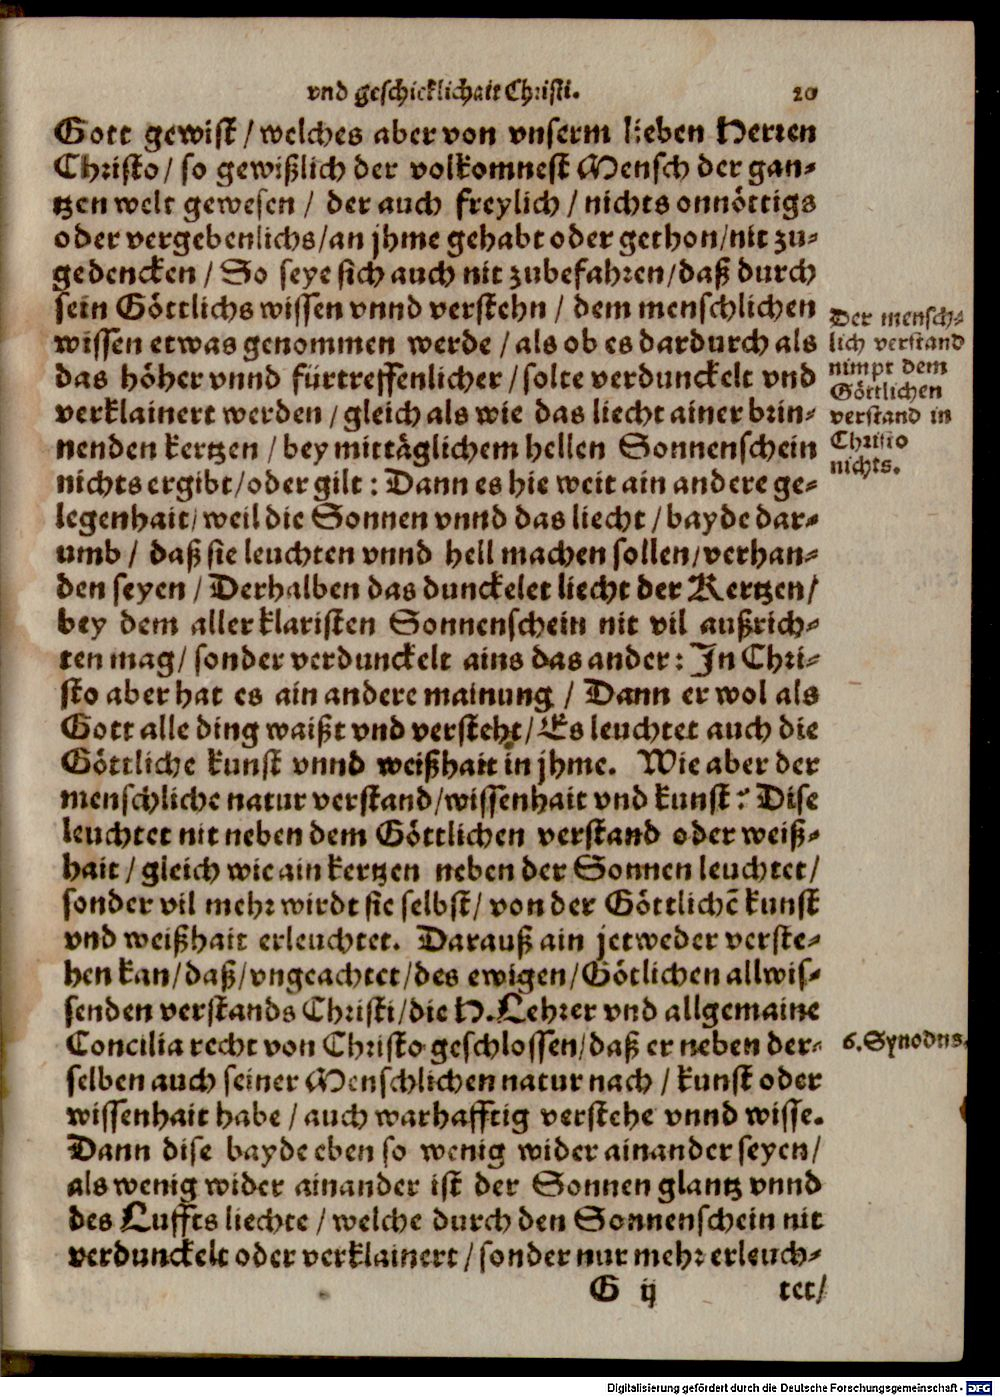 vnd geschicklichait Christi. 20
Gott gewist / welches aber von vnserm lieben Herren
Christo / so gewißlich der volkomnest Mensch der gan-
tzen welt gewesen / der auch freylich / nichts onnöttigs
oder vergebenlichs/an jhme gehabt oder gethon/nit zu-
gedencken / So seye sich auch nit zubefahren/daß durch
sein Göttlichs wissen vnnd verstehn / dem menschlichen
wissen etwas genommen werde / als ob es dardurch als
das höher vnnd fürtreffenlicher / solte verdunckelt vnd
verklainert werden / gleich als wie das liecht ainer brin-
nenden kertzen / bey mittäglichem hellen Sonnenschein
nichts ergibt/oder gilt : Dann es hie weit ain andere ge-
legenhait/ weil die Sonnen vnnd das liecht / bayde dar-
umb / daß sie leuchten vnnd hell machen sollen/verhan-
den seyen / Derhalben das dunckelet liecht der Kertzen/
bey dem aller klaristen Sonnenschein nit vil außrich-
ten mag/ sonder verdunckelt ains das ander : In Chri-
sto aber hat es ain andere mainung / Dann er wol als
Gott alle ding waißt vnd versteht/ Es leuchtet auch die
Göttliche kunst vnnd weißhait in jhme. Wie aber der
menschliche natur verstand/wissenhait vnd kunst? Dise
leuchtet nit neben dem Göttlichen verstand oder weiß-
hait / gleich wie ain kertzen neben der Sonnen leuchtet/
sonder vil mehr wirdt sie selbst/ von der Göttlichē kunst
vnd weißhait erleuchtet. Darauß ain jetweder verste-
hen kan/daß/vngeachtet/des ewigen/Götlichen allwis-
senden verstands Christi/die H. Lehrer vnd allgemaine
Concilia recht von Christo geschlossen/daß er neben der-
selben auch seiner Menschlichen natur nach / kunst oder
wissenhait habe / auch warhafftig verstehe vnnd wisse.
Dann dise bayde eben so wenig wider ainander seyen/
als wenig wider ainander ist der Sonnen glantz vnnd
des Luffts liechte / welche durch den Sonnenschein nit
verdunckelt oder verklainert / sonder nur mehr erleuch-
G ij tet/
Der mensch-
lich verstand
nimpt dem
Göttlichen
verstand in
Christo
nichts.
6. Synodus.
Digitalisierung gefördert durch die Deutsche Forschungsgemeinschaft - DFG